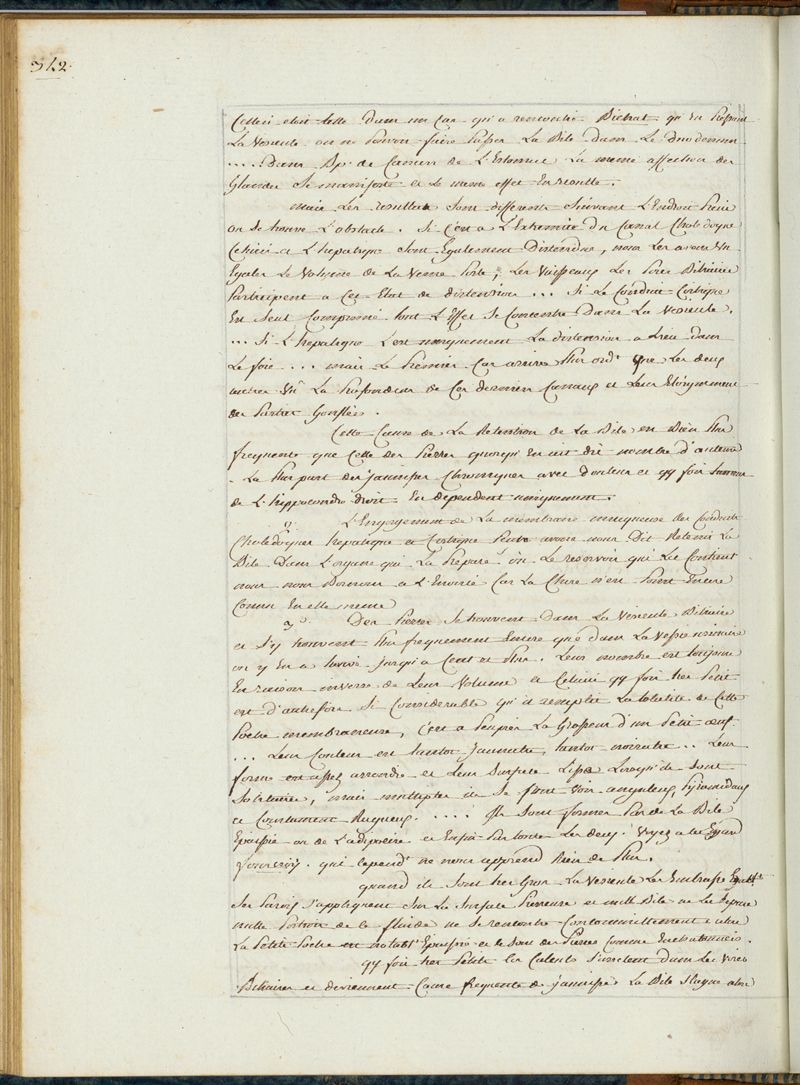 342.
Celleci etoit telle dans un Cas qu'a rencontré Bichat qu'en pressant
La Vesicule on ne pouvoit faire passer La Bile dans Le Duodenum
.... Dans Bp. de Cancers de L'Estomac La meme affection des
Glandes Se manifeste et le meme effet En resulte.
mais Les resultats Sont differents Suivant L'Endroit precis
ou Se trouve L'obstacle. Si C'est a L'Extremité du Canal Choledoque
Celuici et L'hepatique Sont Egalement Distendus, nous Les avons Vu
Egaler Le Volume de La Veine Porte, Les Vaisseaux Les Pores Biliaires
Participent a Cet Etat de distension ... Si Le Conduit Cystique
Est Seul Comprimé tout L'Effet Se Concentre Dans La Vesicule.
... Si L'hepatique L'est uniquement La distension a Lieu dans
Le foie ... mais Le Premier Cas arrive Plus ord.t que Les deux
autres Vu La Profondeur de Ces derniers Canaux et Leur Eloignement
des Parties Gonflées.
Cette Cause de La Retention de La Bile est Bien Plus
frequente que Celle des Pierres quoiqu'En ait dit nombre d'auteurs
. La Plupart des jaunisses Chroniques avec douleur et qq fois tumeur
de L'hippocondre droit En dependent uniquement.
L'Engorgement de La membrane muqueuse des Conduits
Choledoque hepatique et Cystique Peut avons nous Dit Retenir La
Bile Dans L'organe qui La Prepare ou Le reservoir qui La Contient
nous nous Bornons a L'Enoncé Car La Chose n'est Point Encore
Connue En elle meme
2.º Des Pierres Se trouvent Dans La Vesicule Biliaire
et S'y trouvent Plus frequement Encore que dans La Vessie urinaire
on y En a trouvé jusqu'a Cent et Plus. Leur nombre est toujours
En raison inverse de Leur Volume et Celuici qq fois tres Petit
est d'autrefois Si Considerable qu'il remplit La totalité de Cette
Poche membraneuse, C'est a Peuprès La Grosseur d'un Petit œuf
... Leur Couleur est tantot jaunatre, tantot noiratre .. Leur
forme est assez arrondie et Leur Surface Lisse Lorsqu'ils Sont
Solitaires, mais multipliés ils Se font Voir anguleux Pyramidaux
et Couramment Rugueux. .... Ils Sont formés Par de La Bile
Epaissie ou de L'adipocire et Enfin Par toutes Les deux. Voyez a Cet Egard
Fourcroy. qui Cepend.t ne nous apprend Rien de Plus.
quand ils Sont tres Gros La Vesicule Les Embrasse Exact.t
Ses Parois S'appliquent Sur La Surface Pierreuse et nulle Bile ne Les Separe
nulle Portion de Ce fluide ne Se rencontre Contournellement autour
La Petite Poche est notabl.t Epaissie et Ce Sont des Pierres Comme Enchatonnées.
qq fois tres Petits Les Calculs S'insolent dans Les Voies
Biliaires et deviennent Cause frequente de jaunisse La Bile Stagne alors